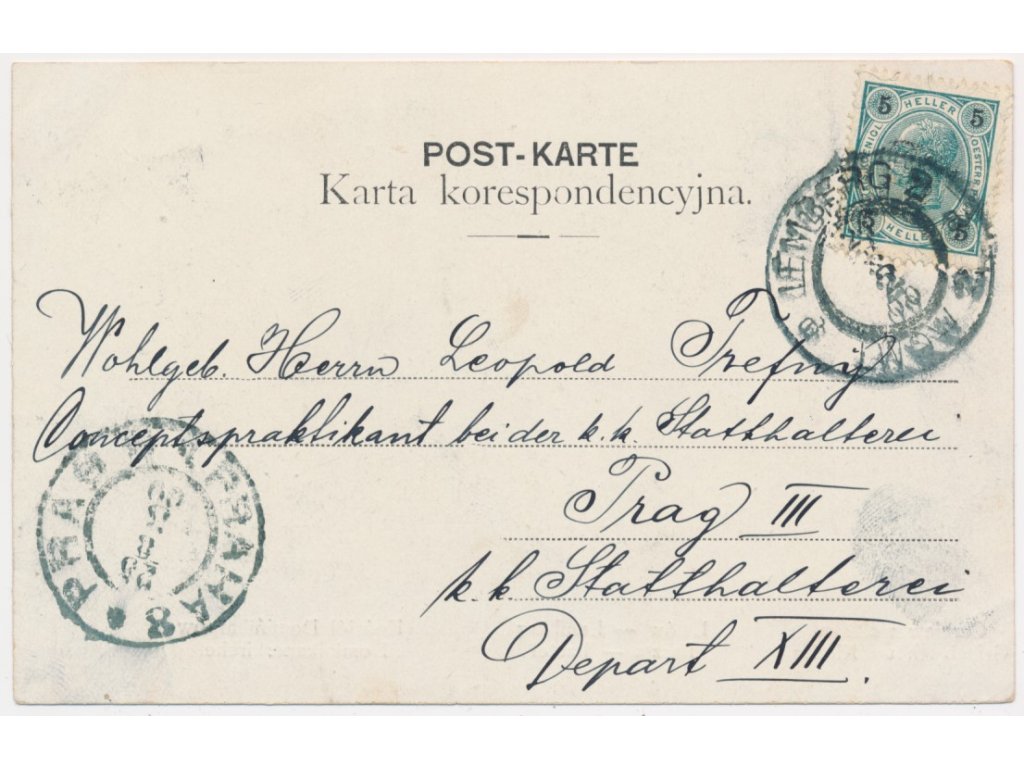 POST-KARTE
Karta korespondencyjna.
5 HELLER 5
5 HELLER 5
LEMBERG 2
Wohlgeb. Herrn Leopold Trefny
Conceptspraktikant bei der k. k. Statthalterei
Prag III
k. k. Statthalterei
Depart XIII.
PRAG PRAHA 8